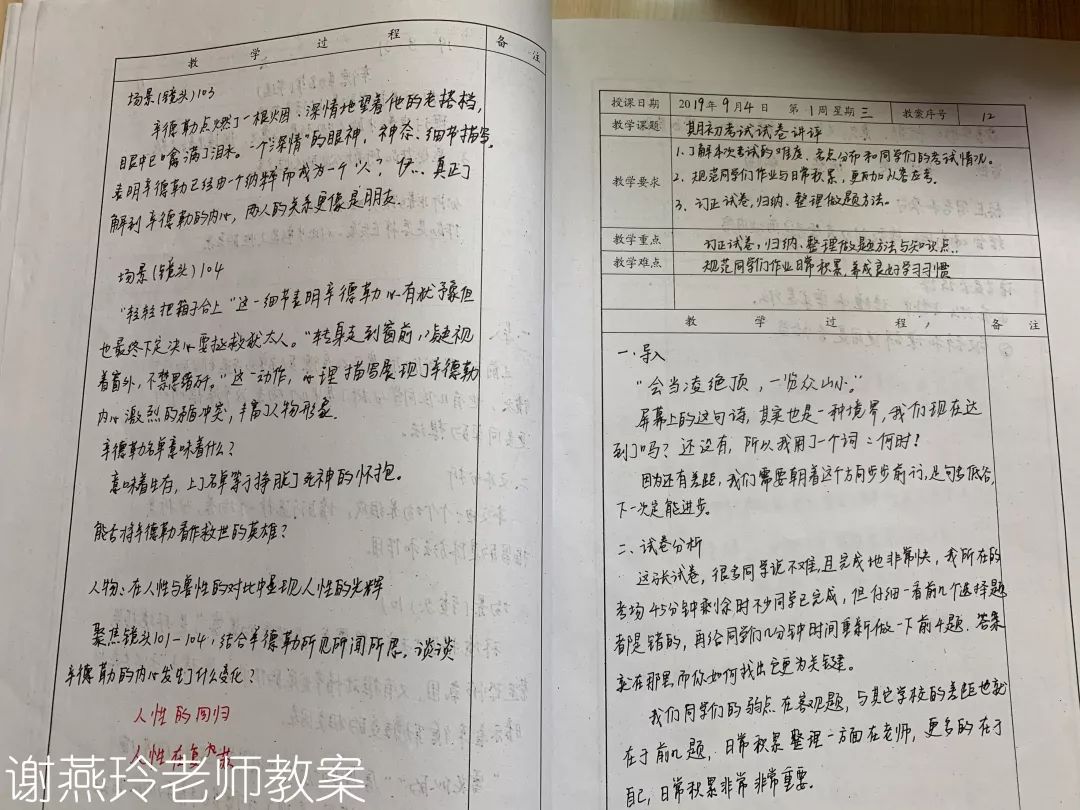 教 学 过 程 备 注
场景(镜头)103
辛德勒点燃了一根烟、深情地望着他的老搭档,
眼中已噙满了泪水。一个"深情"的眼神,神态、细节描写,
表明辛德勒已经由一个纳粹而成为一个"人"? 真正了
解到辛德勒的内心,两人的关系更像是朋友。
场景(镜头)104
"轻轻把箱子合上"这一细节表明辛德勒心有犹豫但
也最终下定决心要拯救犹太人。"转身走到窗前,凝视
着窗外,不禁思绪万千。"这一动作,心理描写展现了辛德勒
内心激烈的矛盾冲突,丰富了人物形象.
辛德勒名单意味着什么?
意味着生存,上名单等于挣脱了死神的怀抱。
能否将辛德勒看作救世的英雄?
人物:在人性与兽性的对比中显现人性的光辉
聚焦镜头101-104,结合辛德勒所见所闻所思,谈谈
辛德勒的内心发生了什么变化?
人性的回归
人性在复
谢燕玲老师教案
授课日期 2019年9月4日 第1周星期三 教案序号 12
教学课题 期初考试试卷讲评
教学要求 1.了解本次考试的难度、考点分布和同学们的考试情况。
2.规范同学们作业与日常积累,更加从容应考。
3.订正试卷,归纳、整理做题方法。
教学重点 订正试卷,归纳、整理做题方法与知识点.
教学难点 规范同学们作业日常积累,养成良好学习习惯
教 学 过 程 备 注
一.导入
"会当凌绝顶,一览众山小."
屏幕上的这句诗,其实也是一种境界,我们现在达
到了吗?还没有,所以我用了一个词:何时!
因为还有差距,我们需要朝着这个方向步步前行,
下一次定能进步。
二、试卷分析
这张试卷,很多同学说不难,且完成地非常快,我所在的
考场45分钟剩余时不少同学已完成,但仔细一看前几个选择题
都是错的,再给同学们几分钟时间重新做一下前4题.答案
就在那里而你如何找出它更为关键。
我们同学们的弱点在客观题,与其它学校的差距也就
在于前几题,日常积累整理一方面在老师,更多的在于
自己,日常积累非常非常重要.